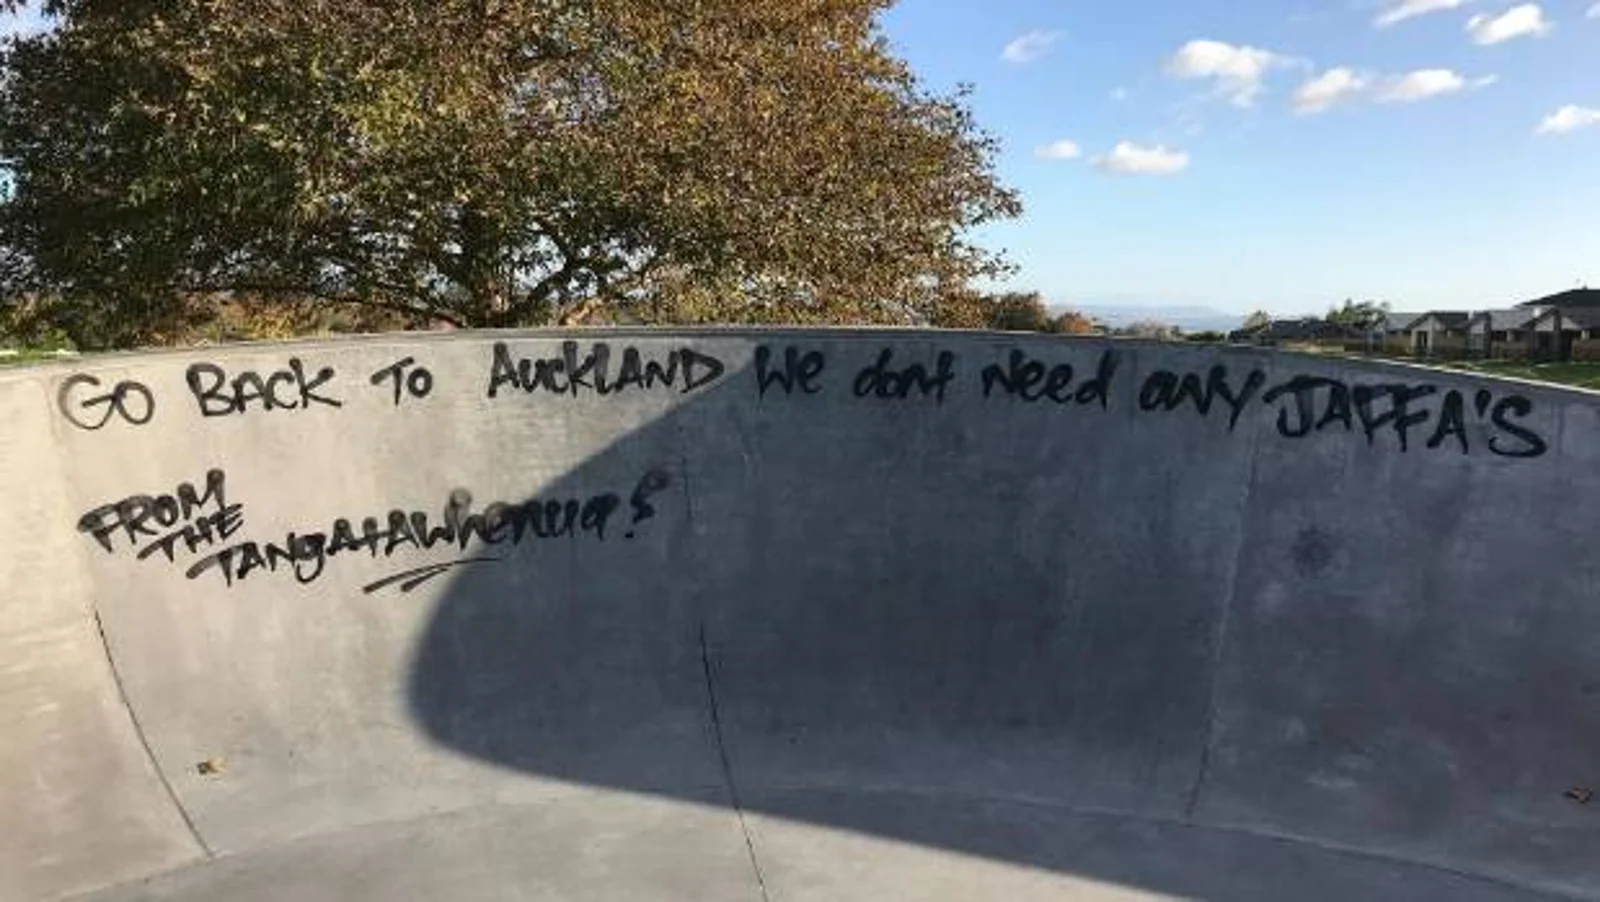 GO BACK TO AUCKLAND We dont Need any JAFFA'S
FROM
THE
TANgAtAWhenua!